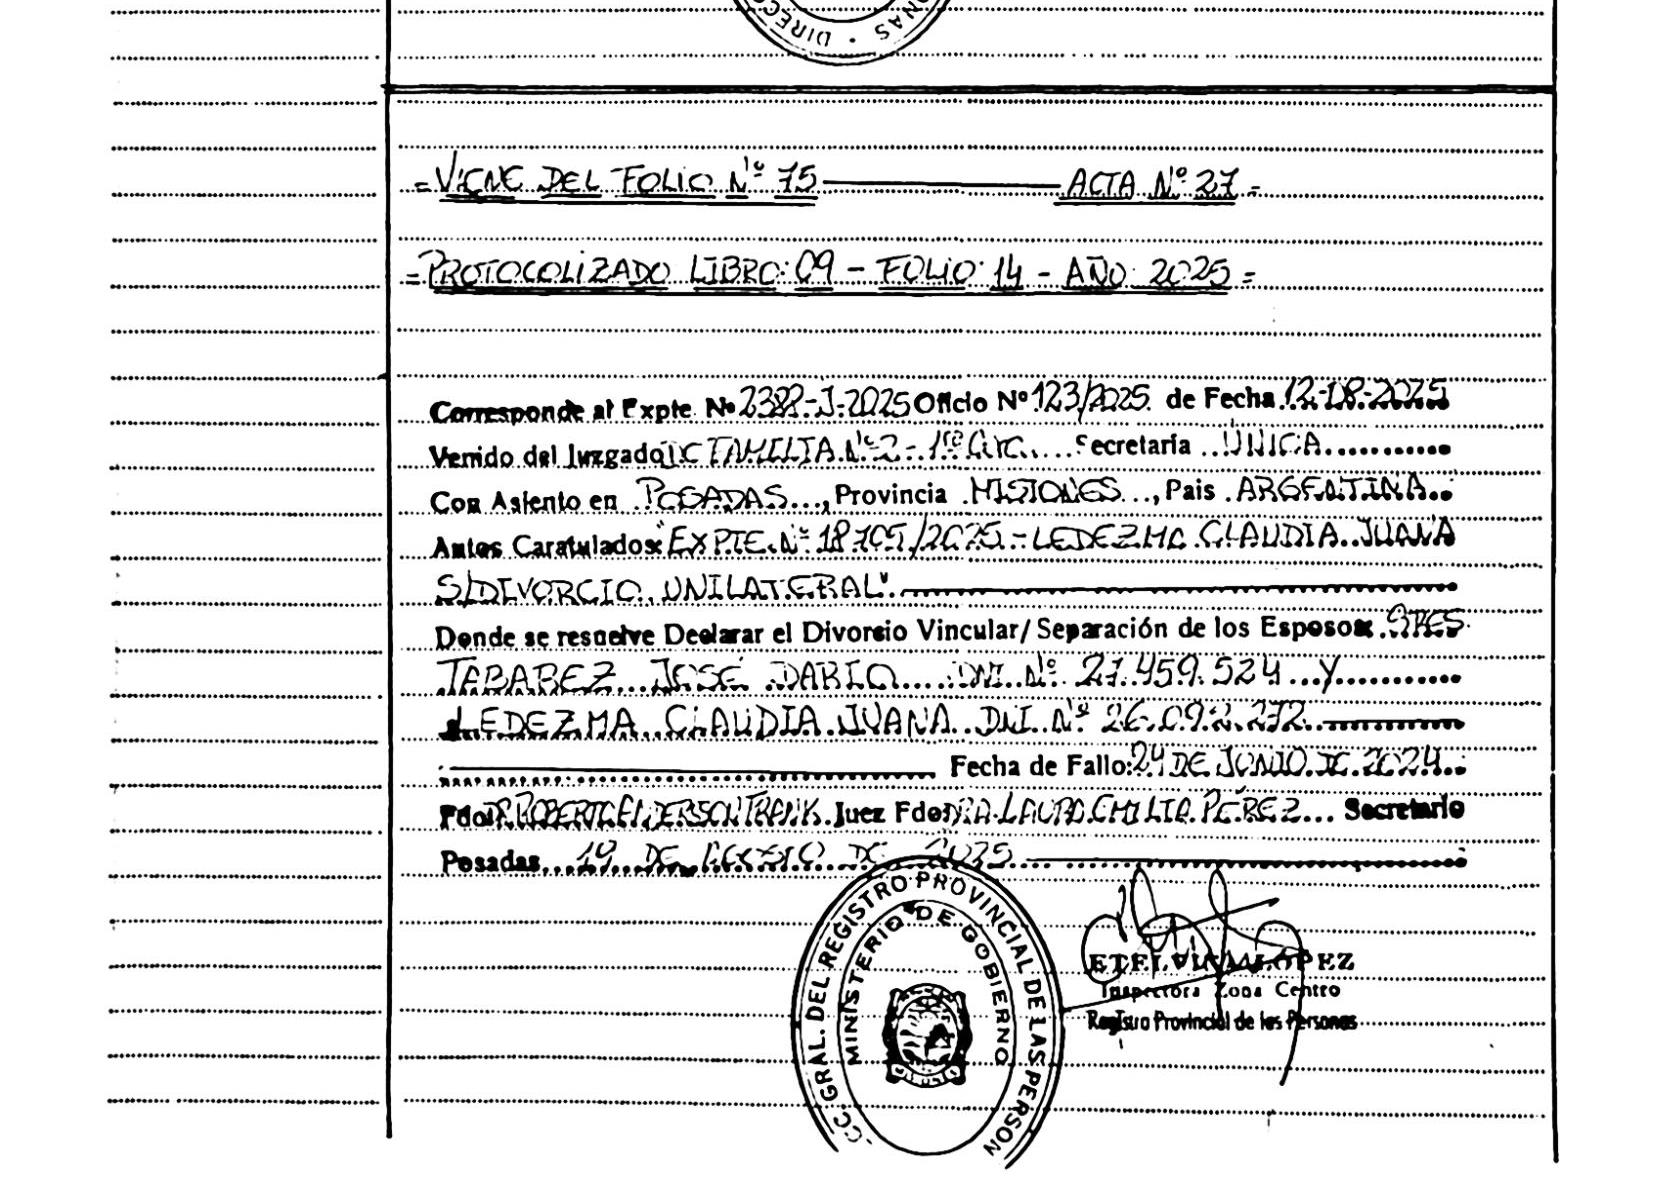 DIRECC
ONAS
= VIENE DEL FOLIO Nº 75 ACTA Nº 27 =
= PROTOCOLIZADO LIBRO: 09 - FOLIO: 14 - AÑO: 2025 =
Corresponde al Expte. Nº 2388-J-2025 Oficio Nº 123/2025 de Fecha 12-08-2025
Venido del Juzgado DE FAMILIA Nº 2 - 1ª Circ. Secretaria UNICA
Con Asiento en POSADAS, Provincia MISIONES, Pais ARGENTINA
Autos Caratulados: "EXPTE. Nº /2025 - LEDEZMA CLAUDIA JUANA
S/DIVORCIO UNILATERAL"
Donde se resuelve Declarar el Divorcio Vincular/ Separación de los Esposos: SRES
TABAREZ JOSÉ DARIO DNI. Nº 27.459.524 Y
LEDEZMA CLAUDIA JUANA DNI. Nº 26.092.272
Fecha de Fallo: 24 DE JUNIO DE 2024
Fdo: DR. ROBERTO ANDERSON FRANK Juez Fdo: DRA. LAURA EMILIA PÉREZ Secretario
Posadas, 19 DE AGOSTO DE 2025
CC. GRAL. DEL REGISTRO PROVINCIAL DE LAS PERSON
MINISTERIO DE GOBIERNO
ETELVINA LOPEZ
Inspectora Zona Centro
Registro Provincial de las Personas